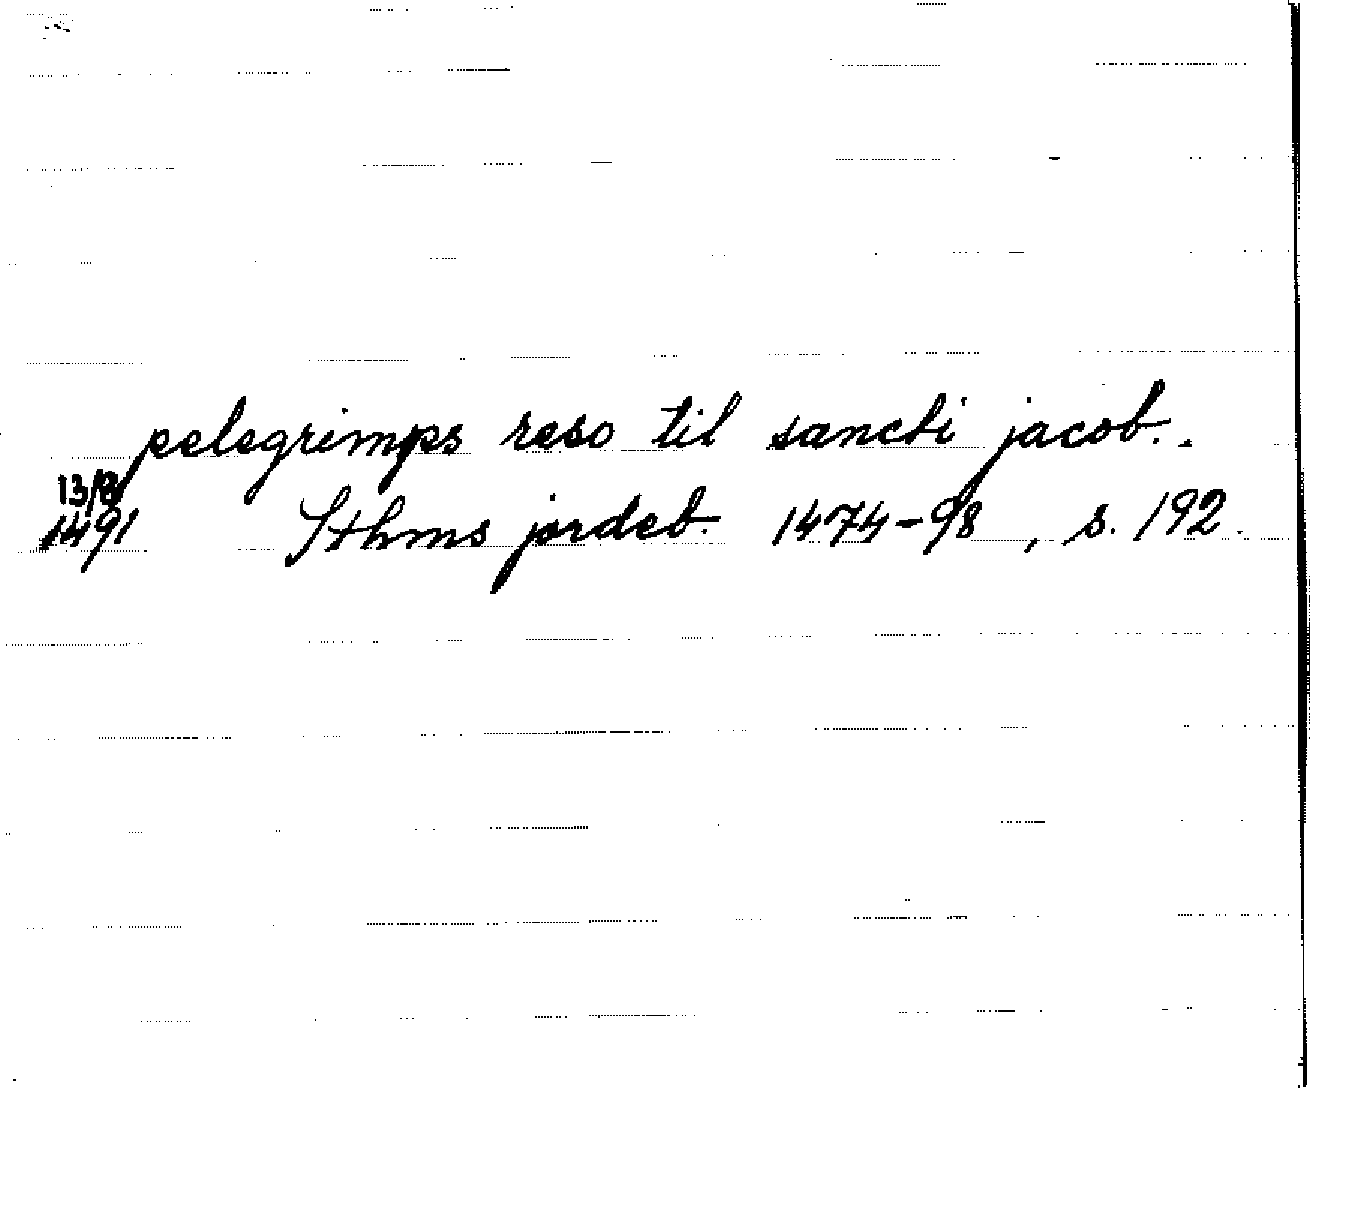 pelegrimps reso til sancti jacob..
13/8
1491 Sthms jordeb. 1474-98, s. 192.